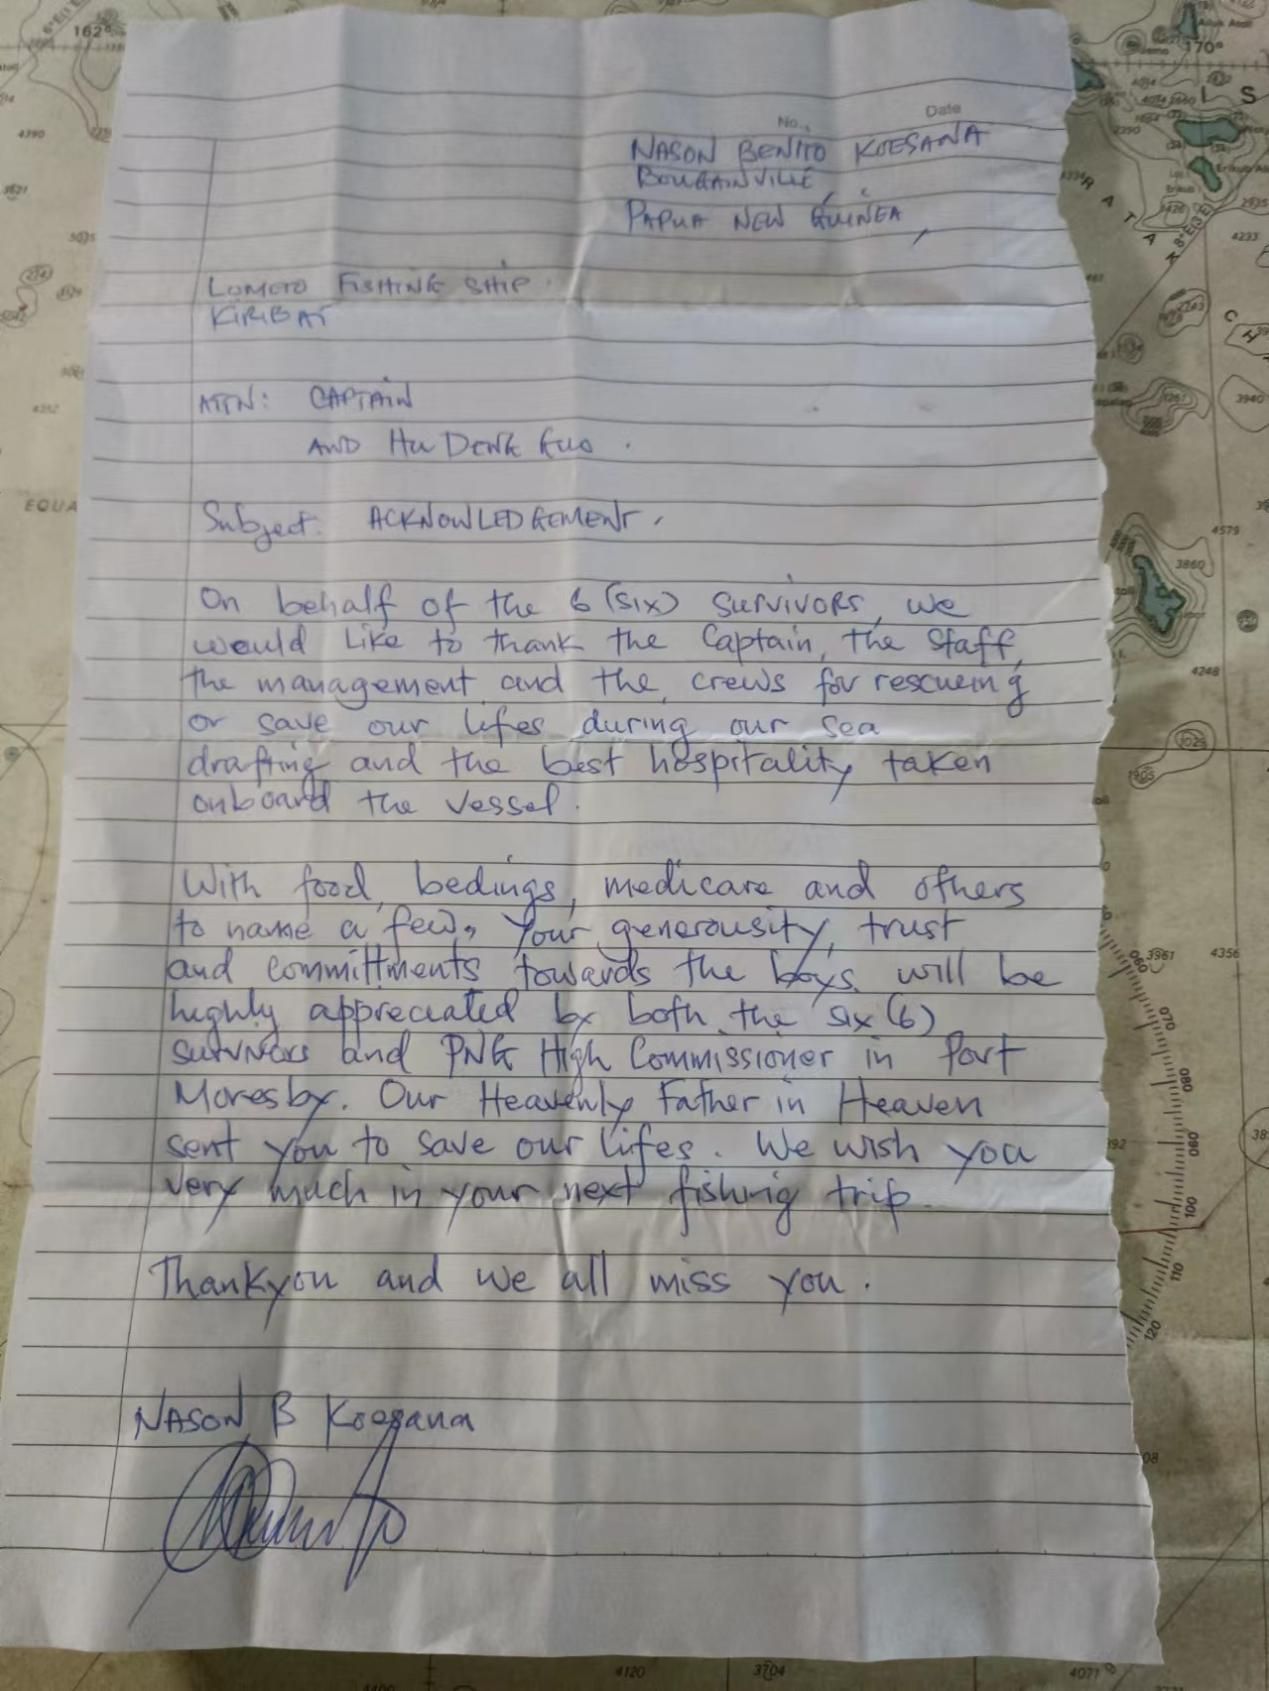 162°
170°
No.,
Date
NASON BENITO KOESANA
BOUGAINVILLE,
PAPUA NEW GUINEA,
LOMETO FISHING SHIP.
KIRIBAT
ATTN: CAPTAIN
AND HU DENG GUO.
Subject: ACKNOWLEDGEMENT.
On behalf of the 6 (six) survivors, we
would like to thank the Captain, the staff,
the management and the crews for rescueing
or save our lifes during our sea
drafting and the best hospitality taken
onboard the vessel.
With food, bedings, medicare and others
to name a few, Your generousity, trust
and committments towards the boys will be
highly appreciated by both the six (6)
survivors and PNG High Commissioner in Port
Moresby. Our Heavenly Father in Heaven
sent you to save our lifes. We wish you
very much in your next fishing trip.
Thankyou and we all miss you.
NASON B Koesana
EQUA
RATAK
CH
4390
5035
4233
3940
4579
3860
4248
3961
4356
060
070
080
090
100
110
120
4120
3704
4071